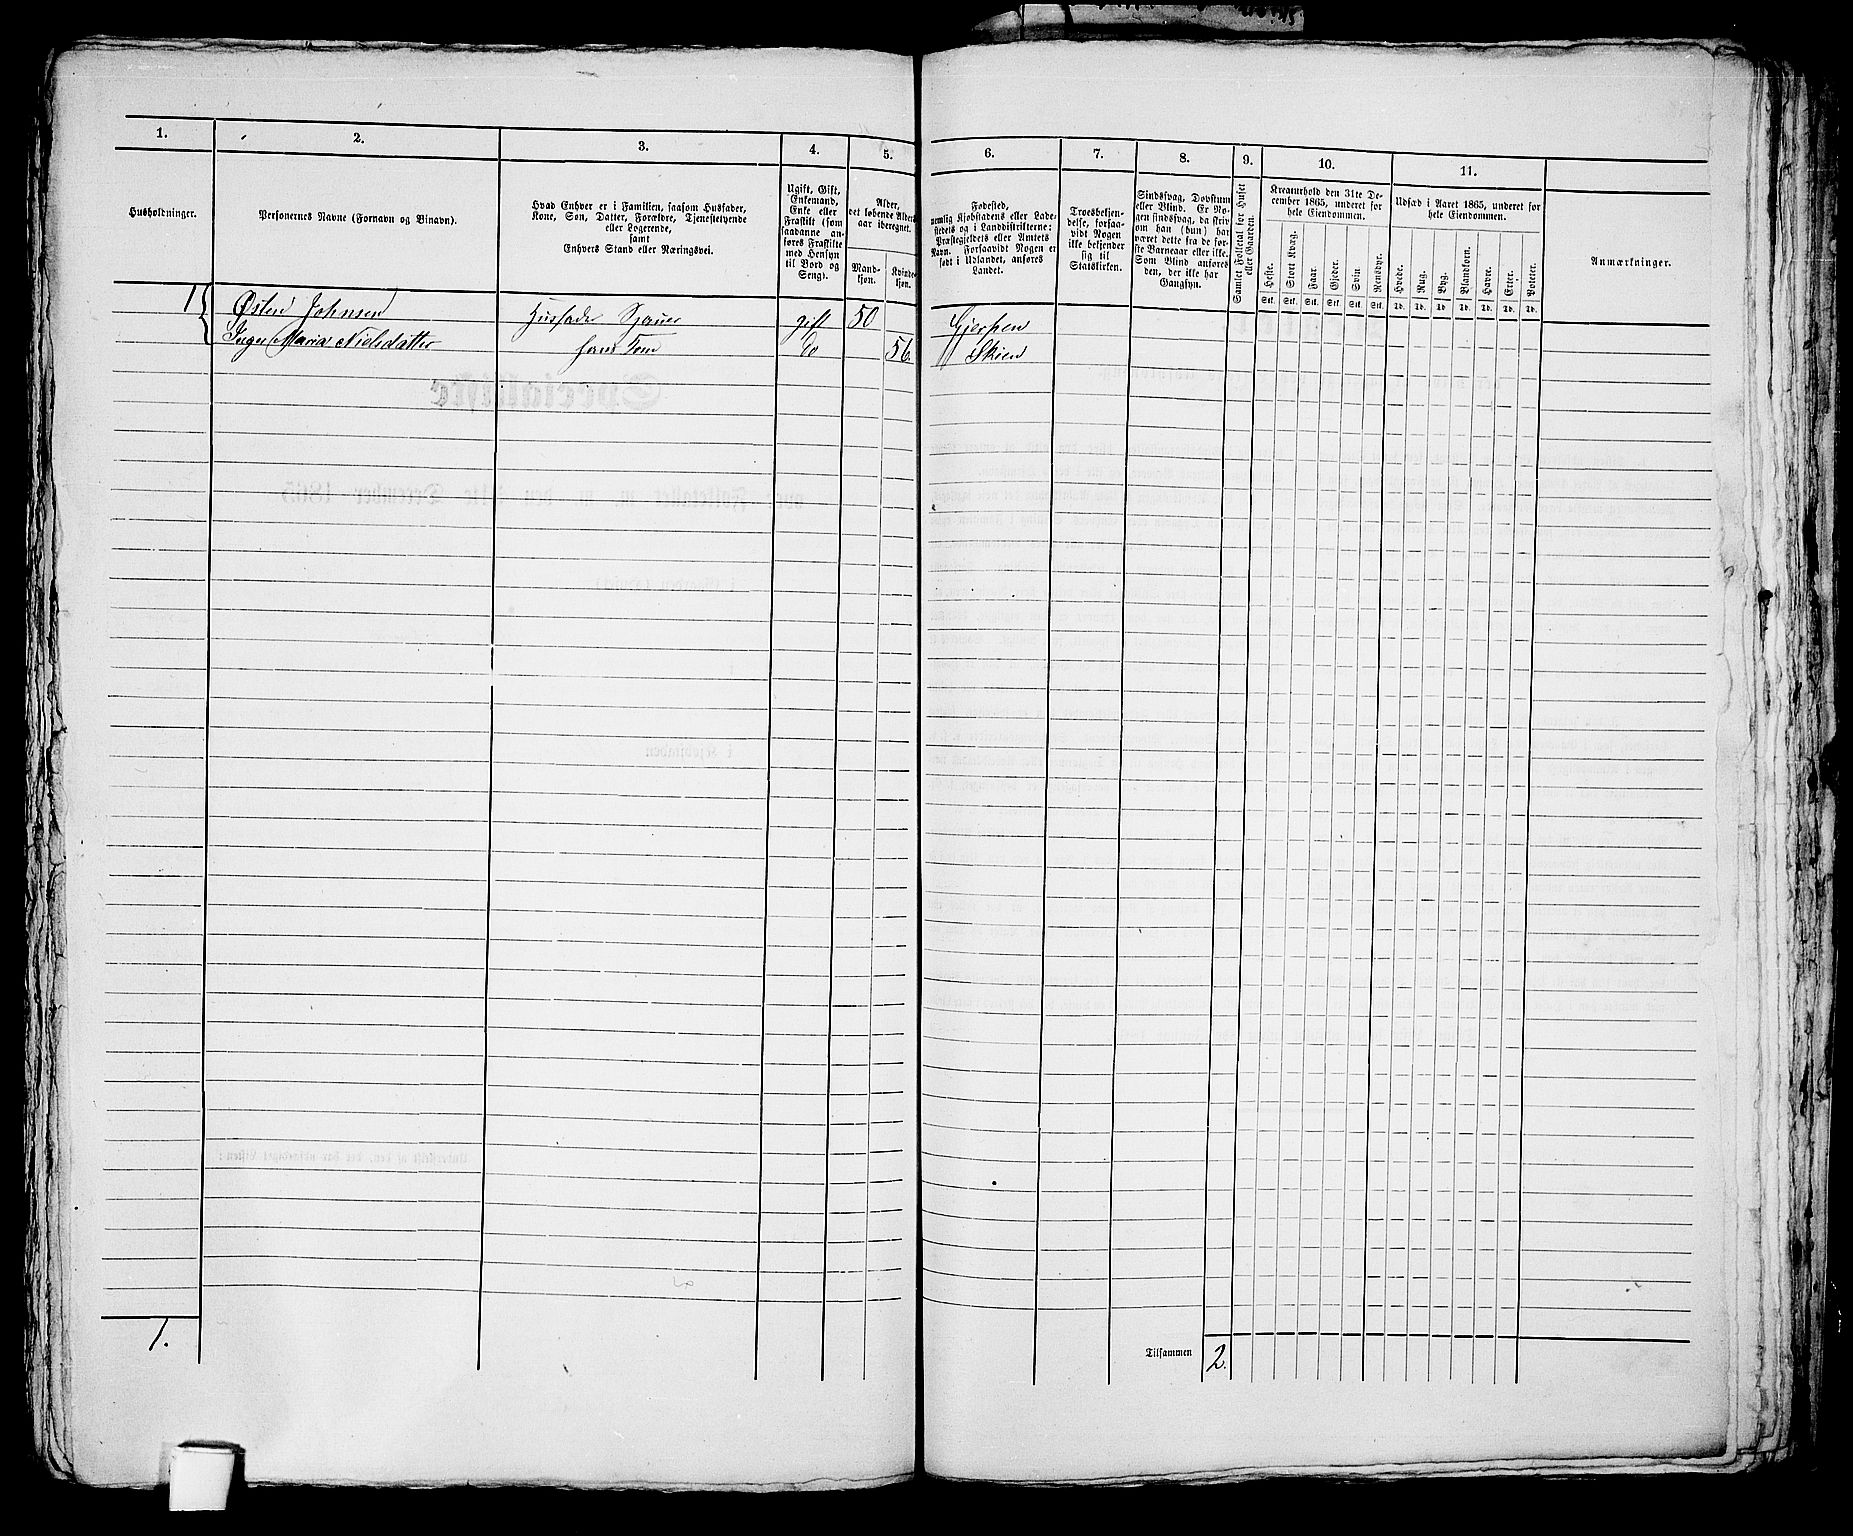 1.
2.
3.
4.
5.
6.
7.
8.
9.
10.
11.
Husholdninger.
Personernes Navne (Fornavn og Binavn).
Hvad Enhver er i Familien, saasom Husfader,
Kone, Søn, Datter, Forældre, Tjenestetyende
eller Logerende,
samt
Enhvers Stand eller Næringsvei.
Ugift, Gift,
Enkemand,
Enke eller
Fraskilt (som
saadanne an-
føres Fraskilte
med Hensyn
til Bord og
Seng).
Alder,
det løbende Alders-
aar iberegnet.
Mand-
kjøn.
Kvinde-
kjøn.
Fødested,
nemlig Kjøbstadens eller Lade-
stedets og i Landdistrikterne:
Præstegjeldets eller Amtets
Navn. Forsaavidt Nogen er
født i Udlandet, anføres
Landet.
Troesbekjen-
delse, forsaa-
vidt Nogen
ikke bekjender
sig til
Statskirken.
Sindssvag, Døvstum
eller Blind. Er No-
gen sindssvag, da skriv
om han (hun) har
været dette fra de før-
ste Barneaar eller ikke.
Som Blind anføres
den, der ikke har
Gangsyn.
Samlet Folketal for Huset
eller Gaarden.
Kreaturhold den 31te De-
cember 1865, underet for
hele Eiendommen.
Heste.
Stort Kvæg.
Faar.
Gjeder.
Svin.
Rensdyr.
Stk. Stk. Stk. Stk. Stk. Stk.
Udsæd i Aaret 1865, underet for
hele Eiendommen.
Hvede.
Rug.
Byg.
Blandkorn.
Havre.
Erter.
Poteter.
Td. Td. Td. Td. Td. Td. Td.
Anmærkninger.
1 Østen Johnsen Husfader gift 50 Gjerpen
Inger Maria Nielsdatter hans Kone do 56. Skien
1.
Tilsammen 2.